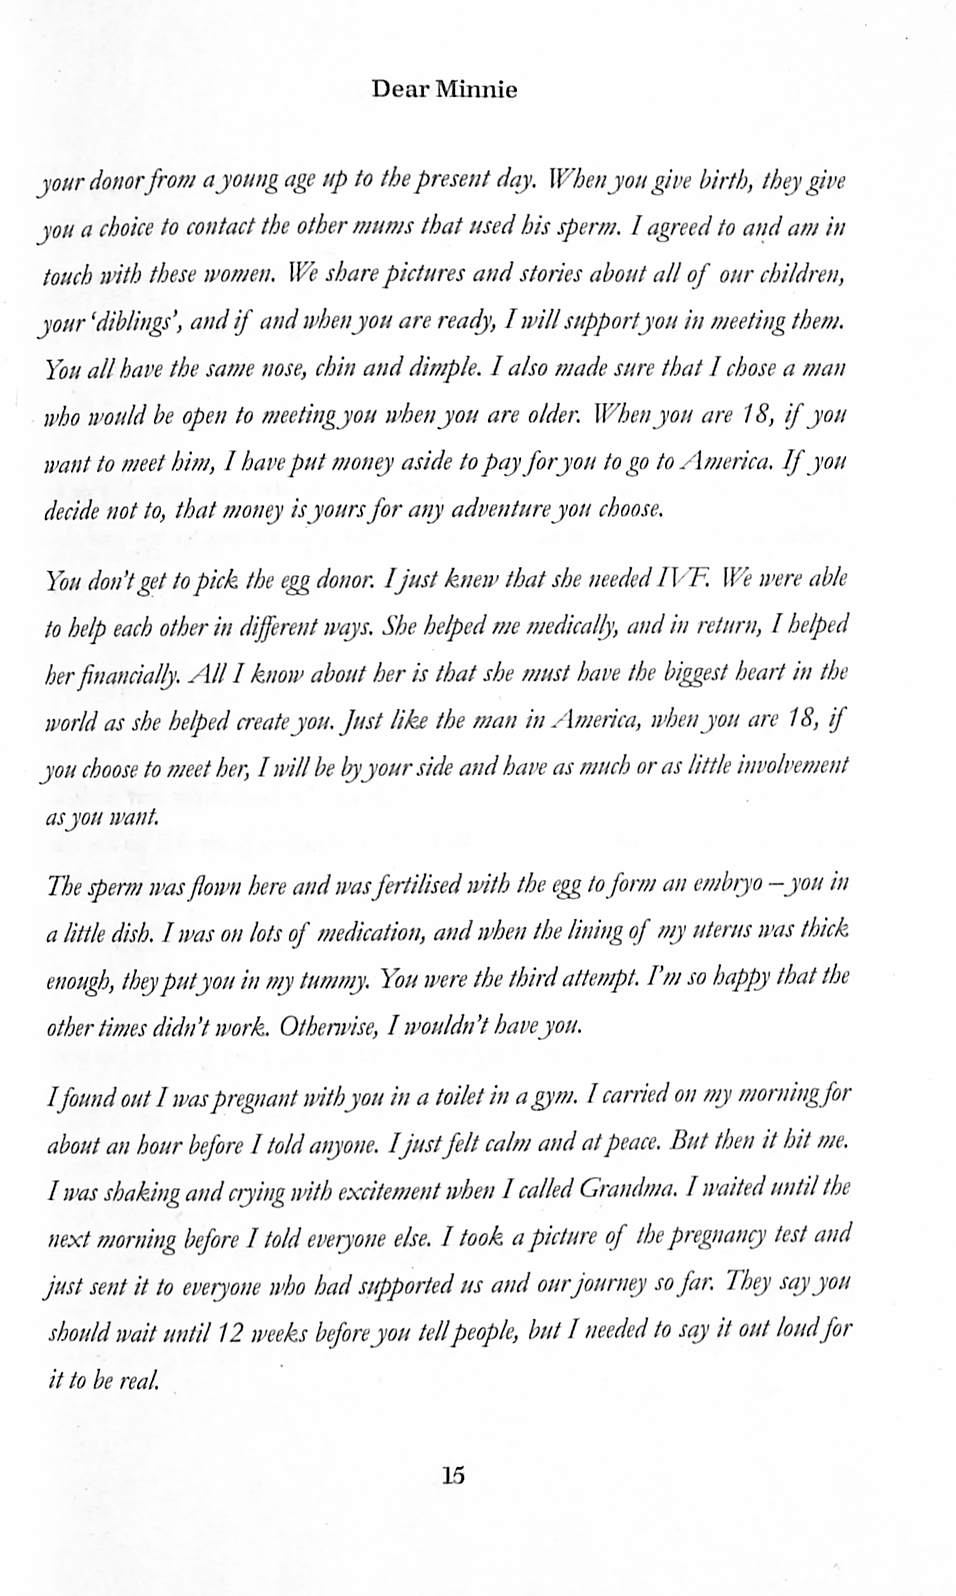 Dear Minnie
your donor from a young age up to the present day. When you give birth, they give
you a choice to contact the other mums that used his sperm. I agreed to and am in
touch with these women. We share pictures and stories about all of our children,
your ‘diblings’, and if and when you are ready, I will support you in meeting them.
You all have the same nose, chin and dimple. I also made sure that I chose a man
who would be open to meeting you when you are older. When you are 18, if you
want to meet him, I have put money aside to pay for you to go to America. If you
decide not to, that money is yours for any adventure you choose.
You don’t get to pick the egg donor. I just knew that she needed IVF. We were able
to help each other in different ways. She helped me medically, and in return, I helped
her financially. All I know about her is that she must have the biggest heart in the
world as she helped create you. Just like the man in America, when you are 18, if
you choose to meet her, I will be by your side and have as much or as little involvement
as you want.
The sperm was flown here and was fertilised with the egg to form an embryo – you in
a little dish. I was on lots of medication, and when the lining of my uterus was thick
enough, they put you in my tummy. You were the third attempt. I’m so happy that the
other times didn’t work. Otherwise, I wouldn’t have you.
I found out I was pregnant with you in a toilet in a gym. I carried on my morning for
about an hour before I told anyone. I just felt calm and at peace. But then it hit me.
I was shaking and crying with excitement when I called Grandma. I waited until the
next morning before I told everyone else. I took a picture of the pregnancy test and
just sent it to everyone who had supported us and our journey so far. They say you
should wait until 12 weeks before you tell people, but I needed to say it out loud for
it to be real.
15